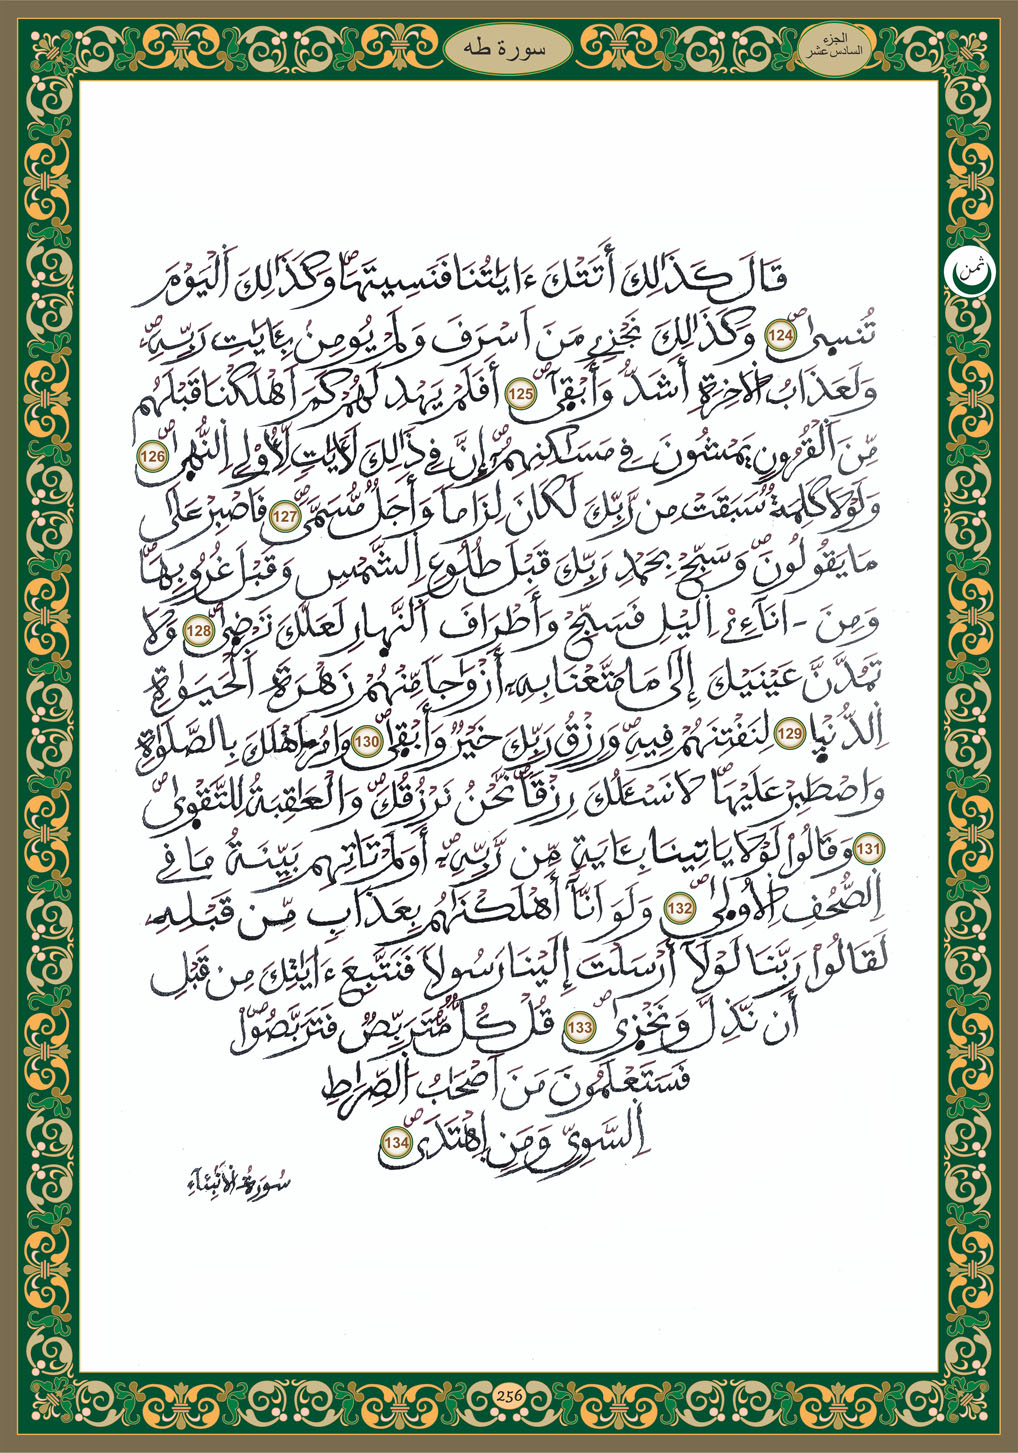 سورة طه
الجزء
السادس عشر
ثمن
قَالَ كَذَٰلِكَ أَتَتْكَ ءَايَٰتُنَا فَنَسِيتَهَا وَكَذَٰلِكَ اَ۬لْيَوْمَ
تُنسَىٰ 124 وَكَذَٰلِكَ نَجْزِے مَنَ اَسْرَفَ وَلَمْ يُومِنۢ بِـَٔايَٰتِ رَبِّهِۦ
وَلَعَذَابُ اُ۬لَاخِرَةِ أَشَدُّ وَأَبْقَىٰٓ 125 أَفَلَمْ يَهْدِ لَهُمْ كَمَ اَهْلَكْنَا قَبْلَهُم
مِّنَ اَ۬لْقُرُونِ يَمْشُونَ فِے مَسَٰكِنِهِمُۥٓ إِنَّ فِے ذَٰلِكَ لَأٓيَٰتٖ لِّأُوْلِے اِ۬لنُّهَىٰ 126
وَلَوْلَا كَلِمَةٞ سَبَقَتْ مِن رَّبِّكَ لَكَانَ لِزَاماٗ وَأَجَلٞ مُّسَمّىٗ 127 فَاصْبِرْ عَلَىٰ
مَا يَقُولُونَ وَسَبِّحْ بِحَمْدِ رَبِّكَ قَبْلَ طُلُوعِ اِ۬لشَّمْسِ وَقَبْلَ غُرُوبِهَا
وَمِنَ اٰنَآءِےْ اِ۬ليْلِ فَسَبِّحْ وَأَطْرَافَ اَ۬لنَّهارِ لَعَلَّكَ تَرْضَىٰ 128 وَلَا
تَمُدَّنَّ عَيْنَيْكَ إِلَىٰ مَا مَتَّعْنَا بِهِۦٓ أَزْوَٰجاٗ مِّنْهُمْ زَهْرَةَ اَ۬لْحَيَوٰةِ
اِ۬لدُّنْيٰا 129 لِنَفْتِنَهُمْ فِيهِ وَرِزْقُ رَبِّكَ خَيْرٞ وَأَبْقَىٰ 130 وَامُرَ اَهْلَكَ بِالصَّلَوٰةِ
وَاصْطَبِرْ عَلَيْهَا لَا نَسْـَٔلُكَ رِزْقاٗ نَّحْنُ نَرْزُقُكَ وَالْعَٰقِبَةُ لِلتَّقْوَىٰ
131 وَقَالُواْ لَوْلَا يَاتِينَا بِـَٔايَةٖ مِّن رَّبِّهِۦٓ أَوَلَمْ تَاتِهِم بَيِّنَةُ مَا فِے
اِ۬لصُّحُفِ اِ۬لُاولَىٰ 132 وَلَوَ اَنَّآ أَهْلَكْنَٰهُم بِعَذَابٖ مِّن قَبْلِهِۦ
لَقَالُواْ رَبَّنَا لَوْلَآ أَرْسَلْتَ إِلَيْنَا رَسُولاٗ فَنَتَّبِعَ ءَايَٰتِكَ مِن قَبْلِ
أَن نَّذِلَّ وَنَخْزَىٰ 133 قُلْ كُلّٞ مُّتَرَبِّصٞ فَتَرَبَّصُواْ
فَسَتَعْلَمُونَ مَنَ اَصْحَٰبُ اُ۬لصِّرَٰطِ
اِ۬لسَّوِيِّ وَمَنِ اِ۪هْتَدَىٰ 134
سُورَةُ الْأَنْبِئَآءِ
256